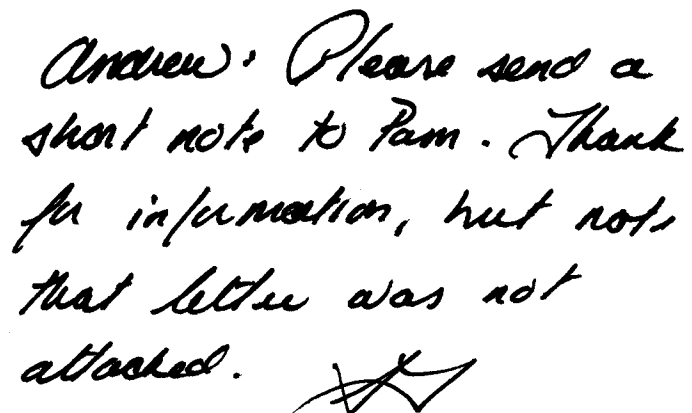 Andrew: Please send a
short note to Pam. Thank
for information, but note
that letter was not
attached.